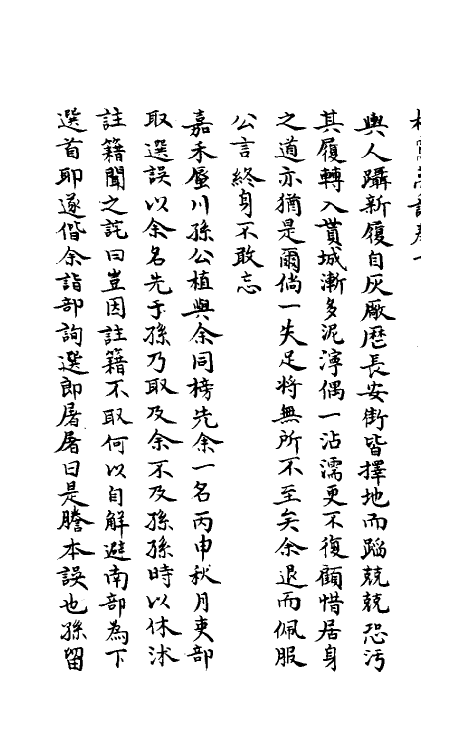 輿人躡新履自灰廠歷長安街皆擇地而蹈兢兢恐汚
其履轉入貰城漸多泥濘偶一沾濡更不復顧惜居身
之道亦猶是爾倘一失足將無所不至矣余退而佩服
公言終身不敢忘
嘉禾蜃川孫公植與余同榜先余一名丙申秋月吏部
取選誤以余名先于孫乃取及余不及孫孫時以休沐
註籍聞之詫曰豈因註籍不取何以自解避南部為下
選首耶遂偕余詣部詢選郎屠屠曰是謄本誤也孫留